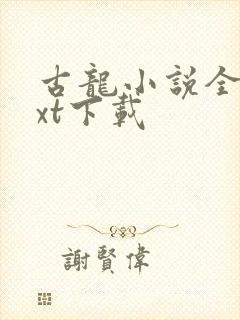 古龍小説全
xt下載
謝賢偉